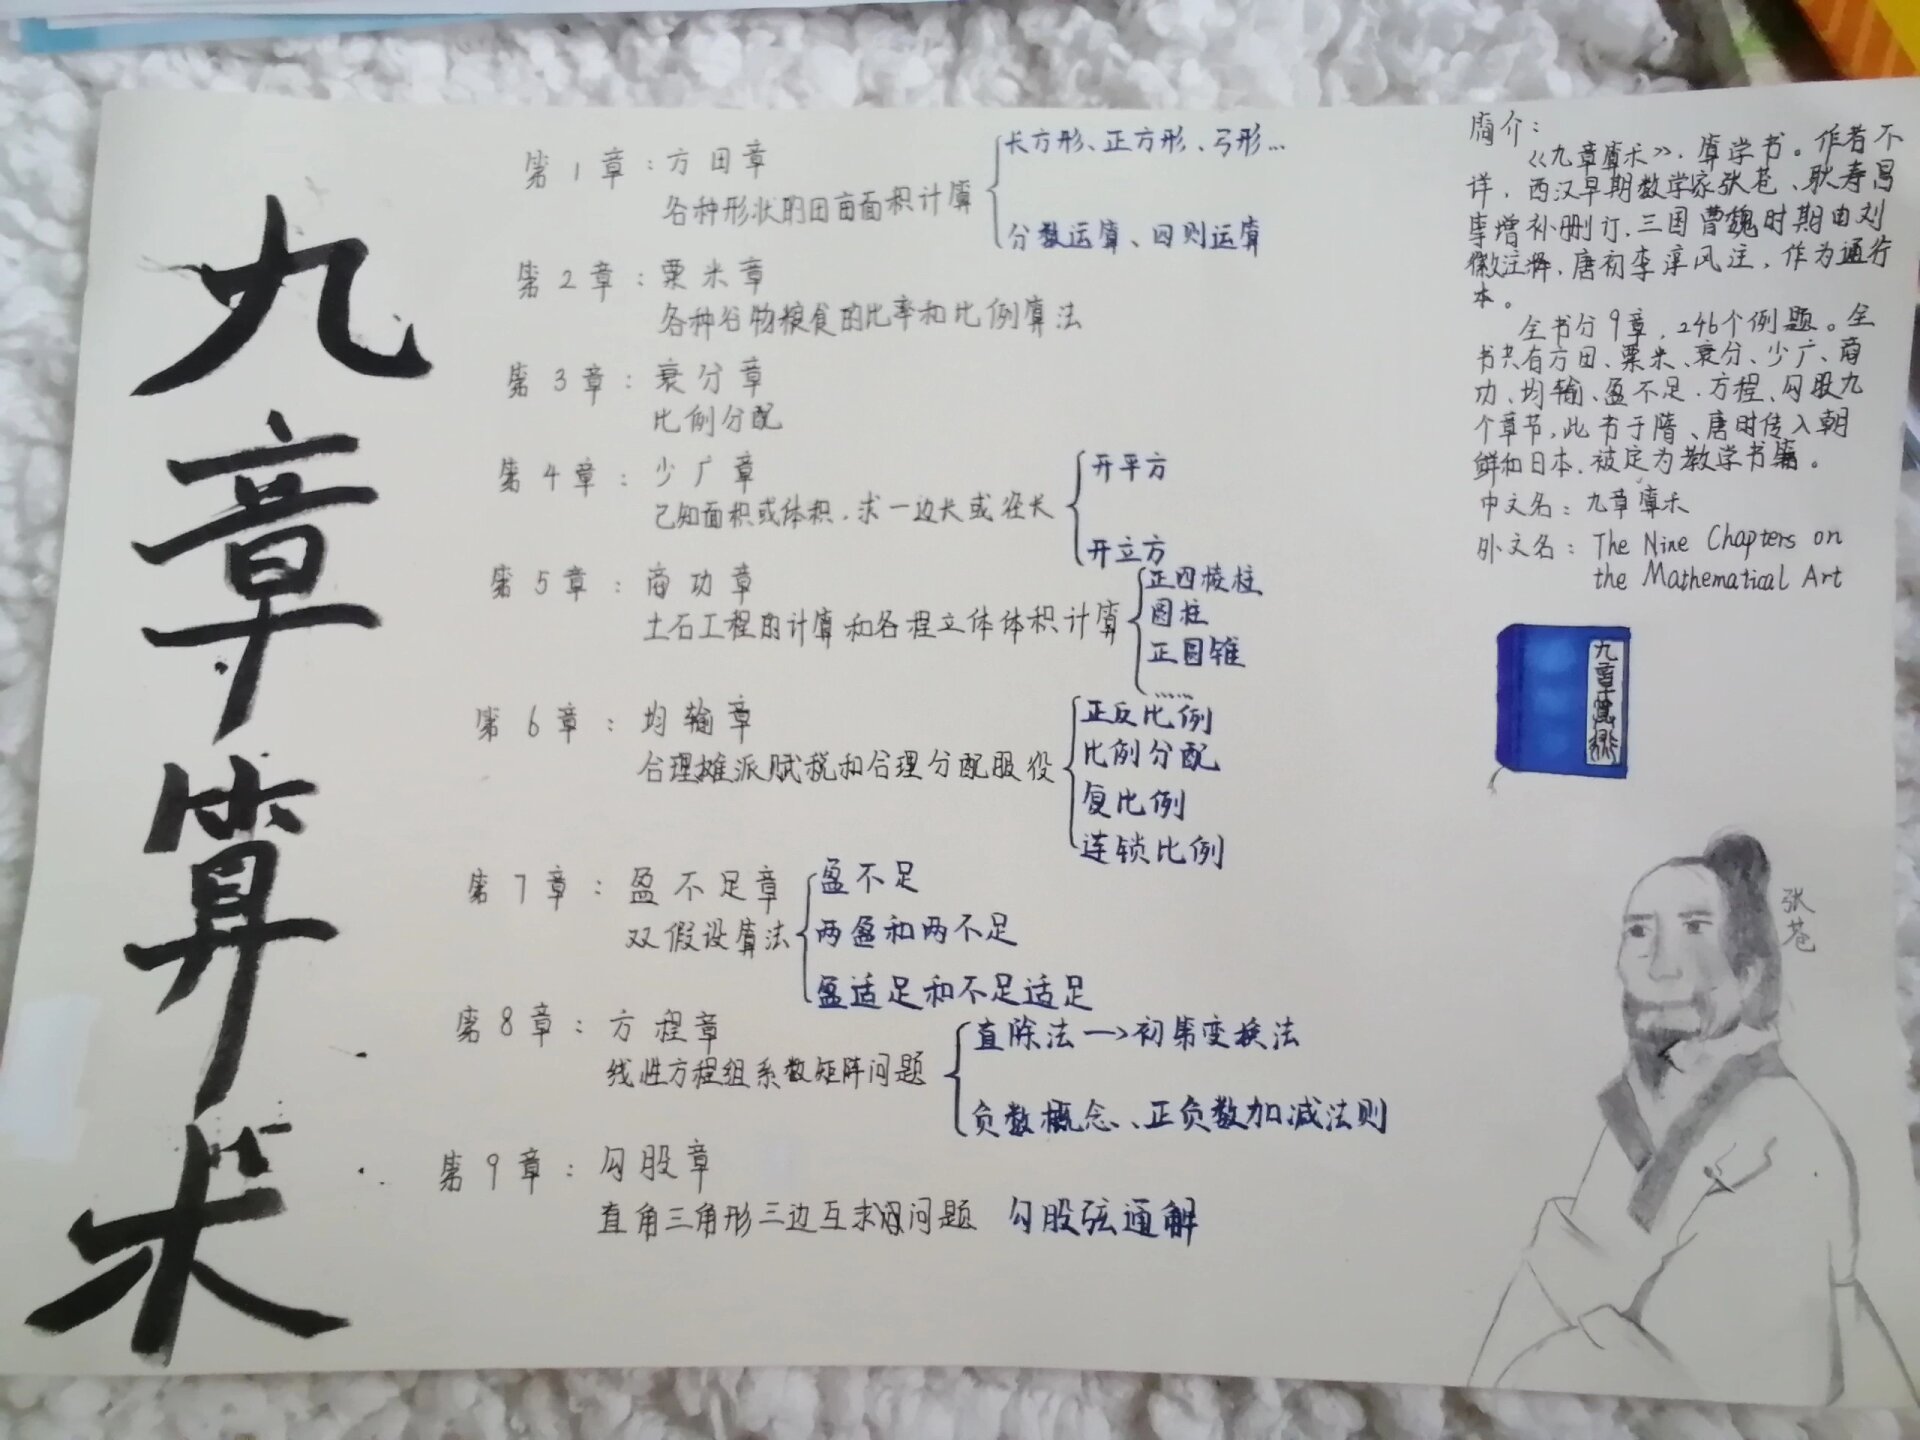 九章算术
第1章：方田章
各种形状的田亩面积计算
长方形、正方形、弓形...
分数运算、四则运算
第2章：粟米章
各种谷物粮食的比率和比例算法
第3章：衰分章
比例分配
第4章：少广章
已知面积或体积.求一边长或径长
开平方
开立方
第5章：商功章
土石工程的计算和各程立体体积计算
正四棱柱
圆柱
正圆锥
......
第6章：均输章
合理摊派赋税和合理分配服役
正反比例
比例分配
复比例
连锁比例
第7章：盈不足章
双假设算法
盈不足
两盈和两不足
盈适足和不足适足
第8章：方程章
线性方程组系数矩阵问题
直除法→初第变换法
负数概念、正负数加减法则
第9章：勾股章
直角三角形三边互求的问题 勾股弦通解
简介：
《九章算术》，算学书。作者不
详，西汉早期数学家张苍、耿寿昌
率增补删订.三国曹魏时期由刘
徽注释，唐初李淳风注，作为通行
本。
全书分9章，246个例题。全
书共有方田、粟米、衰分、少广、商
功、均输、盈不足.方程、勾股九
个章节，此书于隋、唐时传入朝
鲜和日本.被定为教学书籍。
中文名：九章算术
外文名：The Nine Chapters on
the Mathematical Art
九章算术
张苍